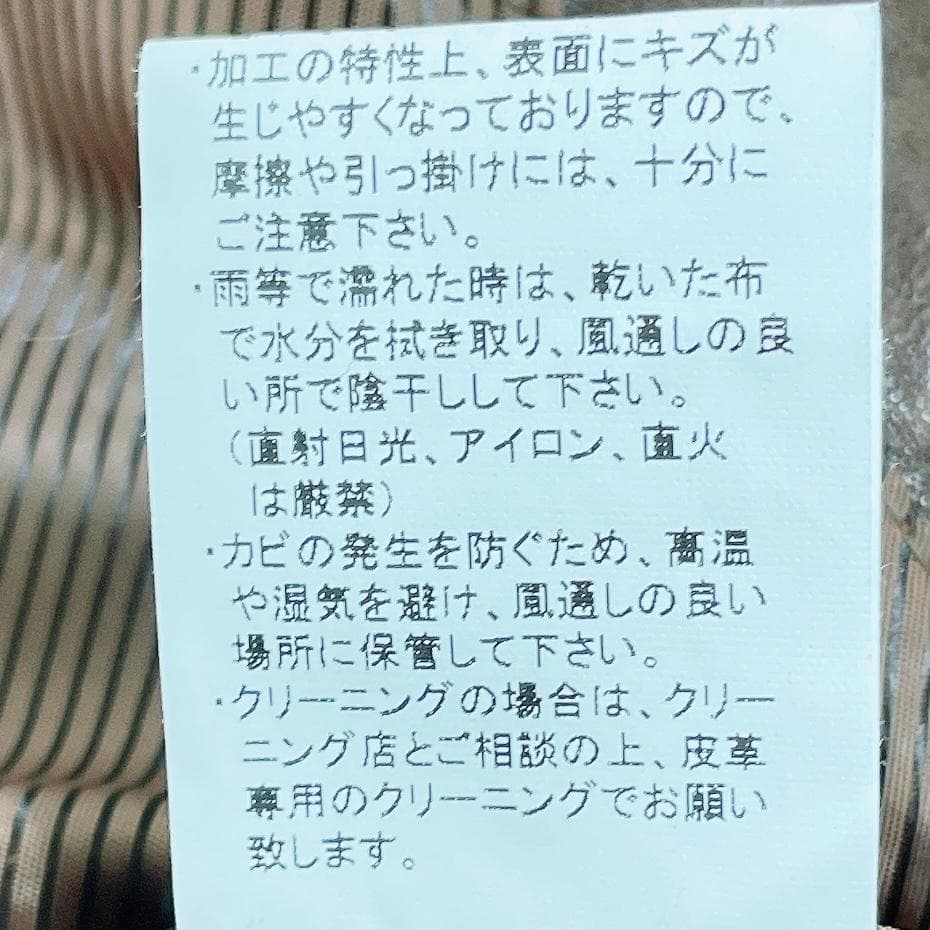 ・加工の特性上、表面にキズが
生じやすくなっておりますので、
摩擦や引っ掛けには、十分に
ご注意下さい。
・雨等で濡れた時は、乾いた布
で水分を拭き取り、風通しの良
い所で陰干しして下さい。
(直射日光、アイロン、直火
は厳禁)
・カビの発生を防ぐため、高温
や湿気を避け、風通しの良い
場所に保管して下さい。
・クリーニングの場合は、クリー
ニング店とご相談の上、皮革
専用のクリーニングでお願い
致します。